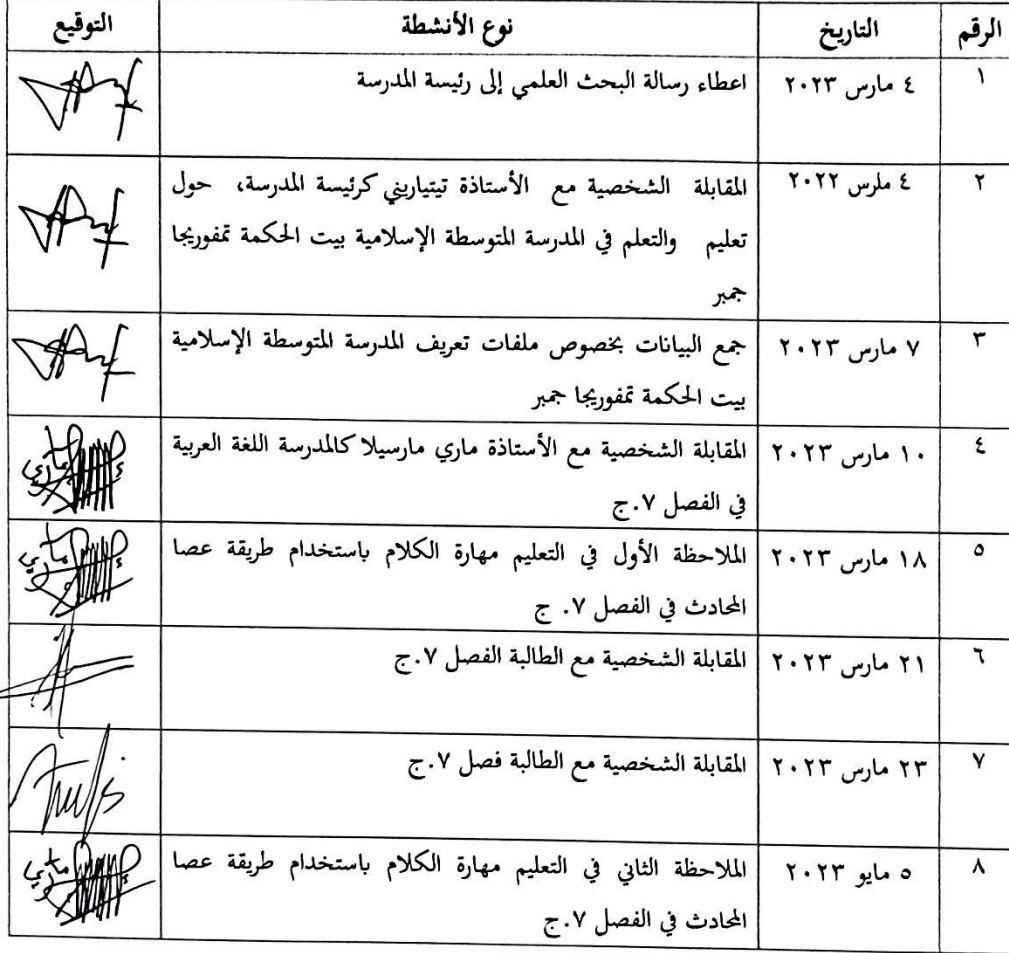 الرقم التاريخ نوع الأنشطة التوقيع
١ ٤ مارس ٢٠٢٣ اعطاء رسالة البحث العلمي إلى رئيسة المدرسة
٢ ٤ ملرس ٢٠٢٢ المقابلة الشخصية مع الأستاذة تيتياريني كرئيسة المدرسة، حول
تعليم والتعلم في المدرسة المتوسطة الإسلامية بيت الحكمة تمفوريجا
جمبر
٣ ٧ مارس ٢٠٢٣ جمع البيانات بخصوص ملفات تعريف المدرسة المتوسطة الإسلامية
بيت الحكمة تمفوريجا جمبر
٤ ١٠ مارس ٢٠٢٣ المقابلة الشخصية مع الأستاذة ماري مارسيلا كالمدرسة اللغة العربية
في الفصل ٧.ج
٥ ١٨ مارس ٢٠٢٣ الملاحظة الأول في التعليم مهارة الكلام باستخدام طريقة عصا
المحادث في الفصل ٧. ج
٦ ٢١ مارس ٢٠٢٣ المقابلة الشخصية مع الطالبة الفصل ٧.ج
٧ ٢٣ مارس ٢٠٢٣ المقابلة الشخصية مع الطالبة فصل ٧.ج
٨ ٥ مايو ٢٠٢٣ الملاحظة الثاني في التعليم مهارة الكلام باستخدام طريقة عصا
المحادث في الفصل ٧.ج